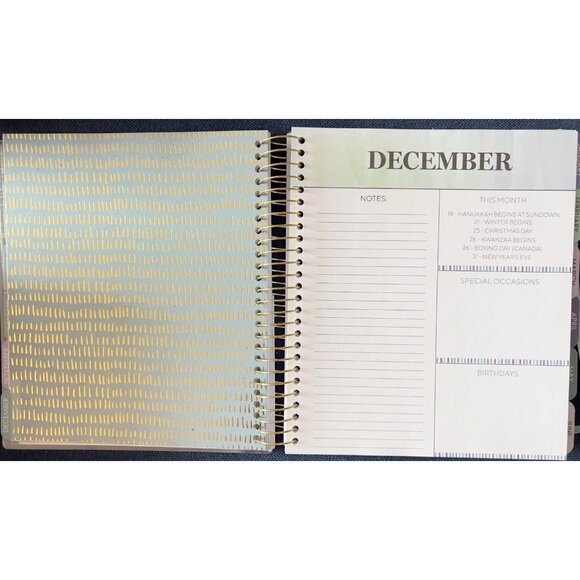 DECEMBER
NOTES:
THIS MONTH
14 - HANUKKAH BEGINS AT SUNDOWN
21 - WINTER BEGINS
25 - CHRISTMAS DAY
26 - KWANZAA BEGINS
26 - BOXING DAY (CANADA)
31 - NEW YEAR'S EVE
SPECIAL OCCASIONS
BIRTHDAYS
DECEMBER
JUNE